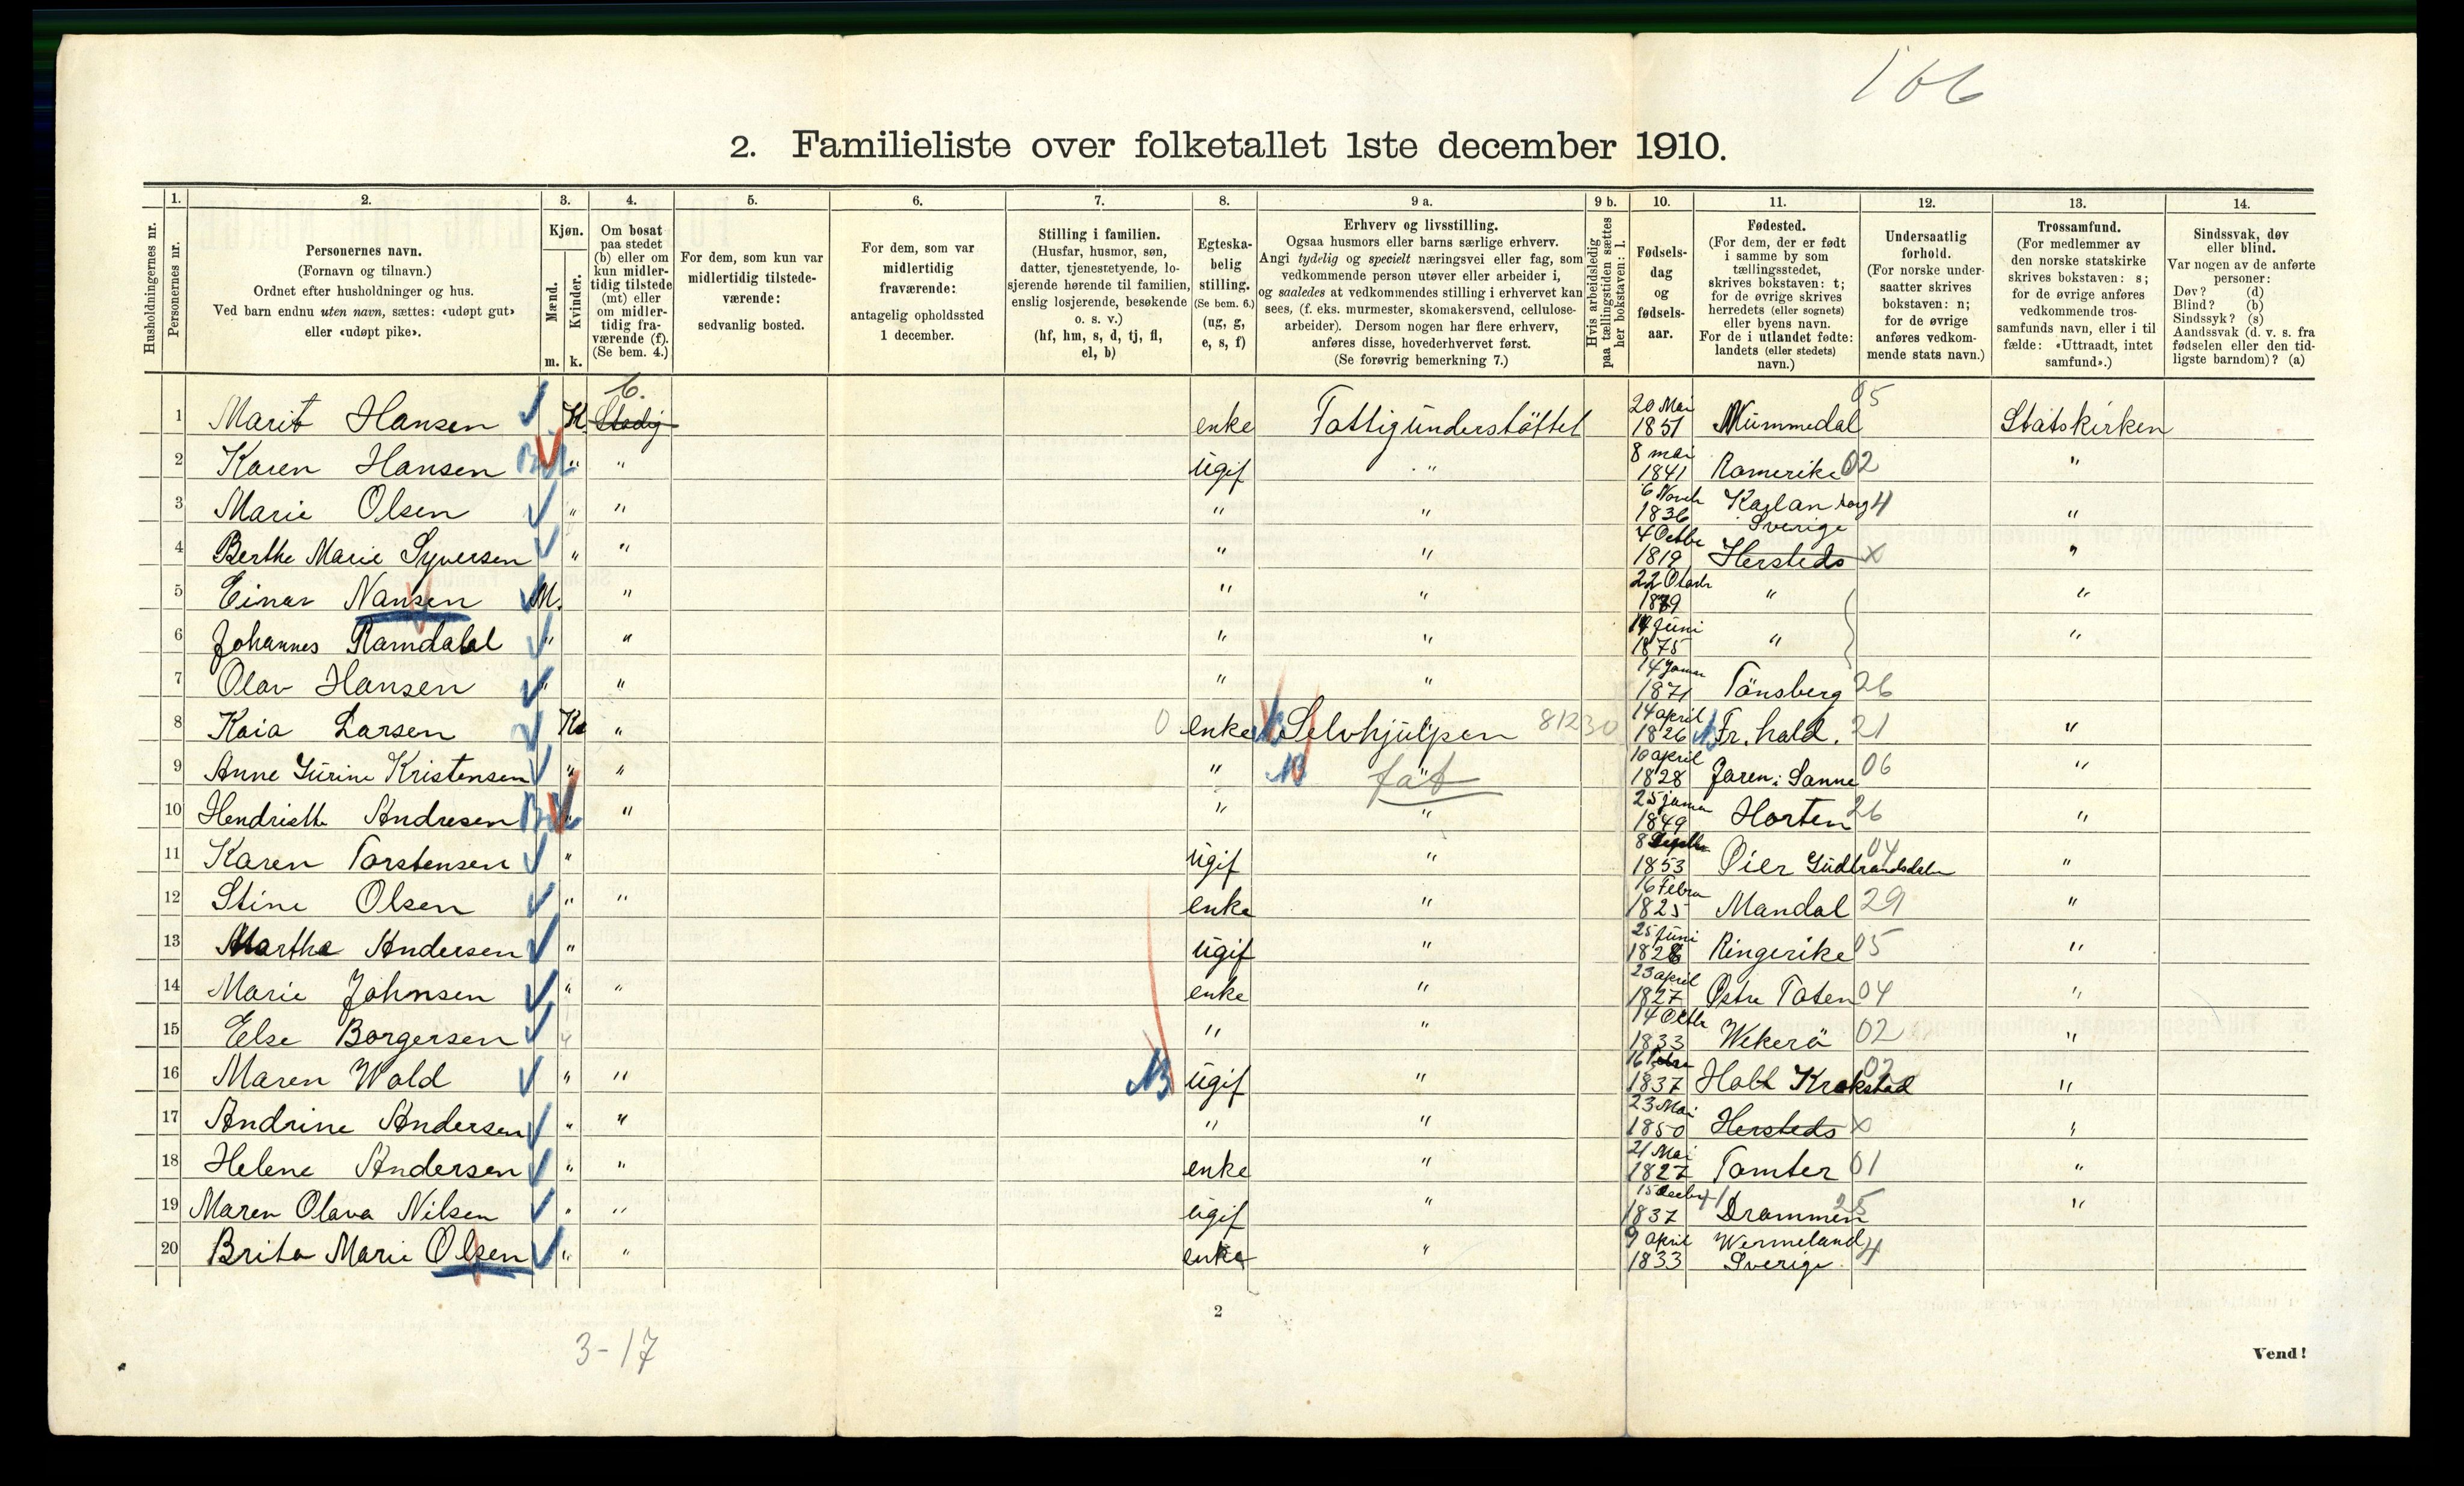 166
2. Familieliste over folketallet 1ste december 1910.
1. 2. 3. 4. 5. 6. 7. 8. 9 a. 9 b. 10. 11. 12. 13. 14.
Husholdningernes nr.
Personernes nr.
Personernes navn.
(Fornavn og tilnavn.)
Ordnet efter husholdninger og hus.
Ved barn endnu uten navn, sættes: «udøpt gut»
eller «udøpt pike».
Kjøn.
Mænd.
Kvinder.
m. k.
Om bosat
paa stedet
(b) eller om
kun midler-
tidig tilstede
(mt) eller
om midler-
tidig fra-
værende (f).
(Se bem. 4.)
For dem, som kun var
midlertidig tilstede-
værende:
sedvanlig bosted.
For dem, som var
midlertidig
fraværende:
antagelig opholdssted
1 december.
Stilling i familien.
(Husfar, husmor, søn,
datter, tjenestetyende, lo-
sjerende hørende til familien,
enslig losjerende, besøkende
o. s. v.)
(hf, hm, s, d, tj, fl,
el, b)
Egteska-
belig
stilling.
(Se bem. 6.)
(ug, g,
e, s, f)
Erhverv og livsstilling.
Ogsaa husmors eller barns særlige erhverv.
Angi tydelig og specielt næringsvei eller fag, som
vedkommende person utøver eller arbeider i,
og saaledes at vedkommendes stilling i erhvervet kan
sees, (f. eks. murmester, skomakersvend, cellulose-
arbeider). Dersom nogen har flere erhverv,
anføres disse, hovederhvervet først.
(Se forøvrig bemerkning 7.)
Hvis arbeidsledig
paa tællingstiden sættes
her bokstaven: l.
Fødsels-
dag
og
fødsels-
aar.
Fødested.
(For dem, der er født
i samme by som
tællingsstedet,
skrives bokstaven: t;
for de øvrige skrives
herredets (eller sognets)
eller byens navn.
For de i utlandet fødte:
landets (eller stedets)
navn.)
Undersaatlig
forhold.
(For norske under-
saatter skrives
bokstaven: n;
for de øvrige
anføres vedkom-
mende stats navn.)
Trossamfund.
(For medlemmer av
den norske statskirke
skrives bokstaven: s;
for de øvrige anføres
vedkommende tros-
samfunds navn, eller i til
fælde: «Uttraadt, intet
samfund».)
Sindssvak, døv
eller blind.
Var nogen av de anførte
personer:
Døv? (d)
Blind? (b)
Sindssyk? (s)
Aandssvak (d. v. s. fra
fødselen eller den tid-
ligste barndom)? (a)
1 Marit Hansen K. b. Stadig enke Fattigunderstöttet 20 Mai 1851 Nummedal 05 Statskirken
2 Karen Hansen " " ugif " 8 mai 1841 Romerike 02 "
3 Marie Olsen " " " " 6 Novch 1836 Karlanborg Sverige 4 "
4 Berthe Marie Syversen " " " " 4 Octbr 1819 Hersteds x "
5 Einar Nansen M. " " " 22 1879 " "
6 Johannes Ramdahl " " " " 14 Juni 1875 " "
7 Olav Hansen " " " " 14 Januar 1871 Tönsberg 26
8 Kaia Larsen K " 0 enke Selvhjülpen 81230 14 april 1826 Fr. hald. 21 "
9 Anne Gurine Kristensen " " " fat 10 april 1828 Jaren i Sanne 06 "
10 Hendriette Andresen " " " " 25 januar 1849 Horten 26 "
11 Karen Torstensen " ugif " 8 1853 Øier Gudbrandsdalen 04 "
12 Stine Olsen " " enke " 16 Febru 1825 Mandal 29 "
13 Marthe Andersen " ugif " 25 Juni 1826 Ringerike 05 "
14 Marie Johnsen " " enke " 23 april 1827 Østre Toten 04 "
15 Else Borgersen " " " 14 Octbr 1833 Wekerö 02 "
16 Maren Wold " " ugif " 16 1837 Holt Krokstad 02 "
17 Andrine Andersen " " " " 23 Mai 1850 Hersteds x "
18 Helene Andersen " " enke " 21 Mai 1827 Tomter 01 "
19 Maren Olava Nilsen " " ugif " 15 1837 Drammen 25 "
20 Brita Marie Olsen " " enke " 9 april 1833 Wermeland Sverige 4
2
3-17
Vend!